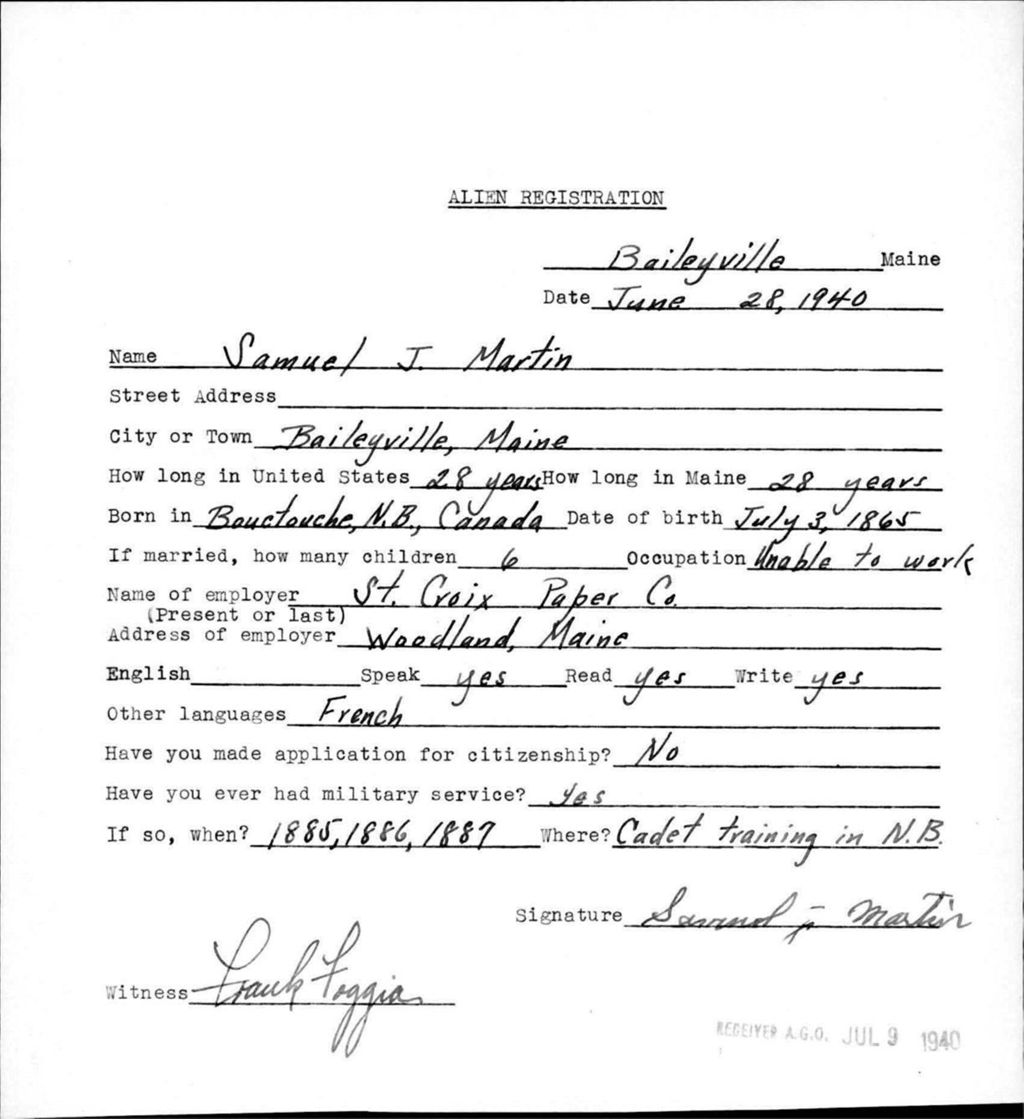 ALIEN REGISTRATION
Baileyville Maine
Date June 28, 1940
Name Samuel J. Martin
Street Address
City or Town Baileyville, Maine
How long in United States 28 years How long in Maine 28 years
Born in Bouctouche, N.B., Canada Date of birth July 3, 1865
If married, how many children 6 Occupation Unable to work
Name of employer St. Croix Paper Co.
(Present or last)
Address of employer Woodland, Maine
English Speak yes Read yes Write yes
Other languages French
Have you made application for citizenship? No
Have you ever had military service? yes
If so, when? 1885, 1886, 1887 Where? Cadet training in N.B.
Signature Samuel J Martin
Witness Frank Foggia
RECEIVED A.G.O. JUL 9 1940